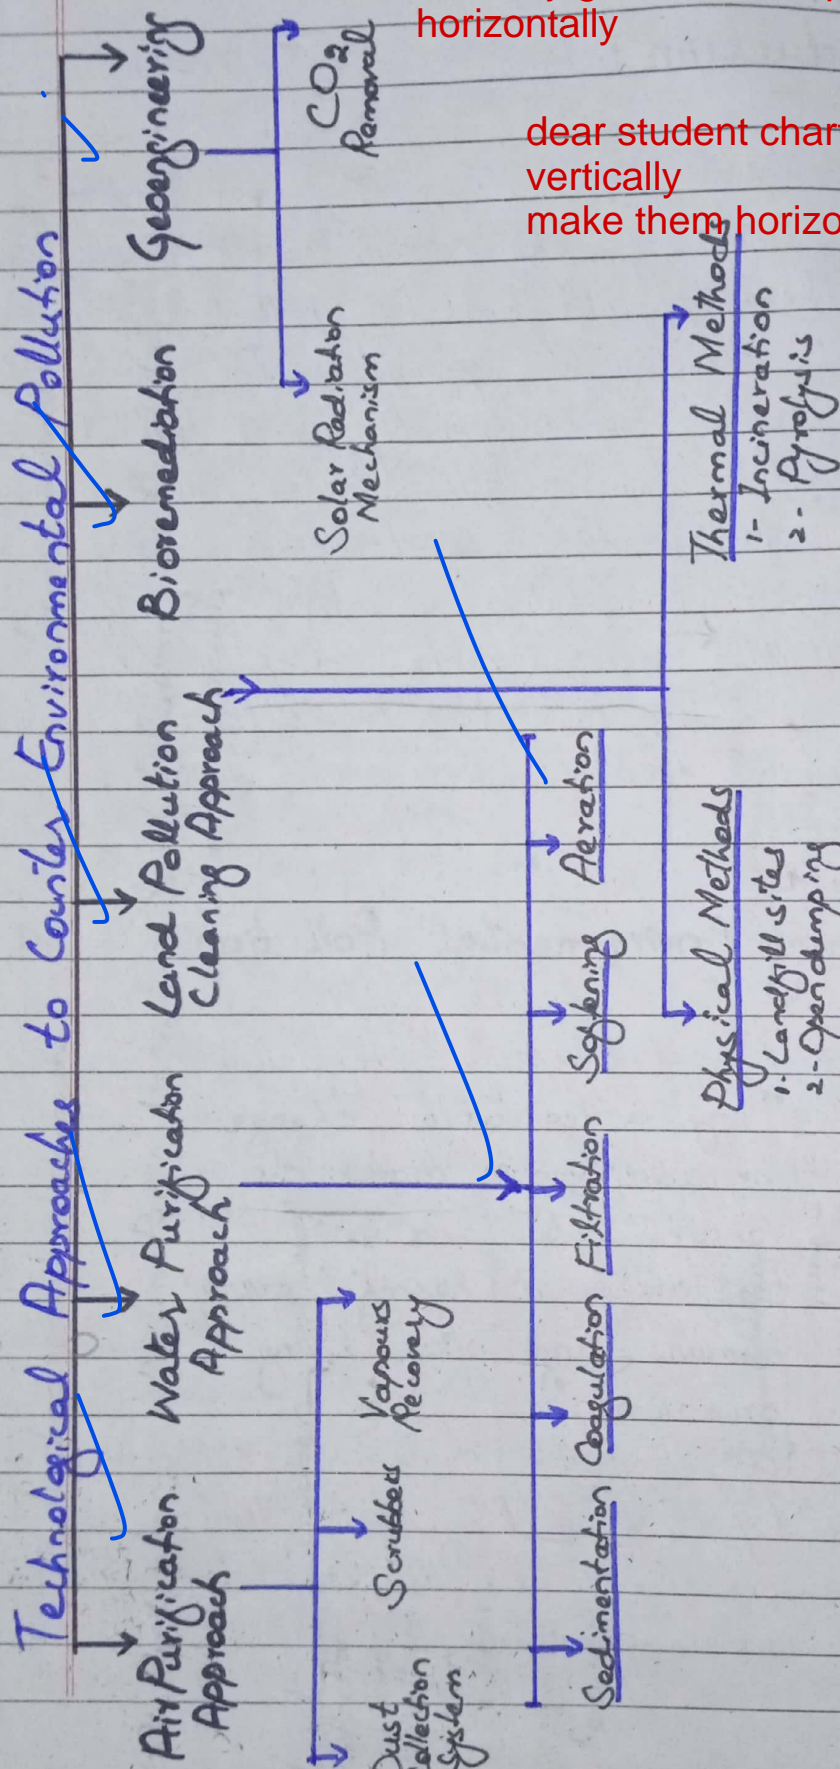 horizontally
dear student char
vertically
make them horizo
Technological Approaches to Counter Environmental Pollution
Air Purification
Approach
Water Purification
Approach
Land Pollution
Cleaning Approach
Bioremediation
Geoengineering
Dust
Collection
System
Scrubbers
Vapours
Recovery
Solar Radiation
Mechanism
CO2
Removal
Sedimentation
Coagulation
Filtration
Softening
Aeration
Physical Methods
1- Landfill sites
2- Open dumping
Thermal Methods
1- Incineration
2- Pyrolysis